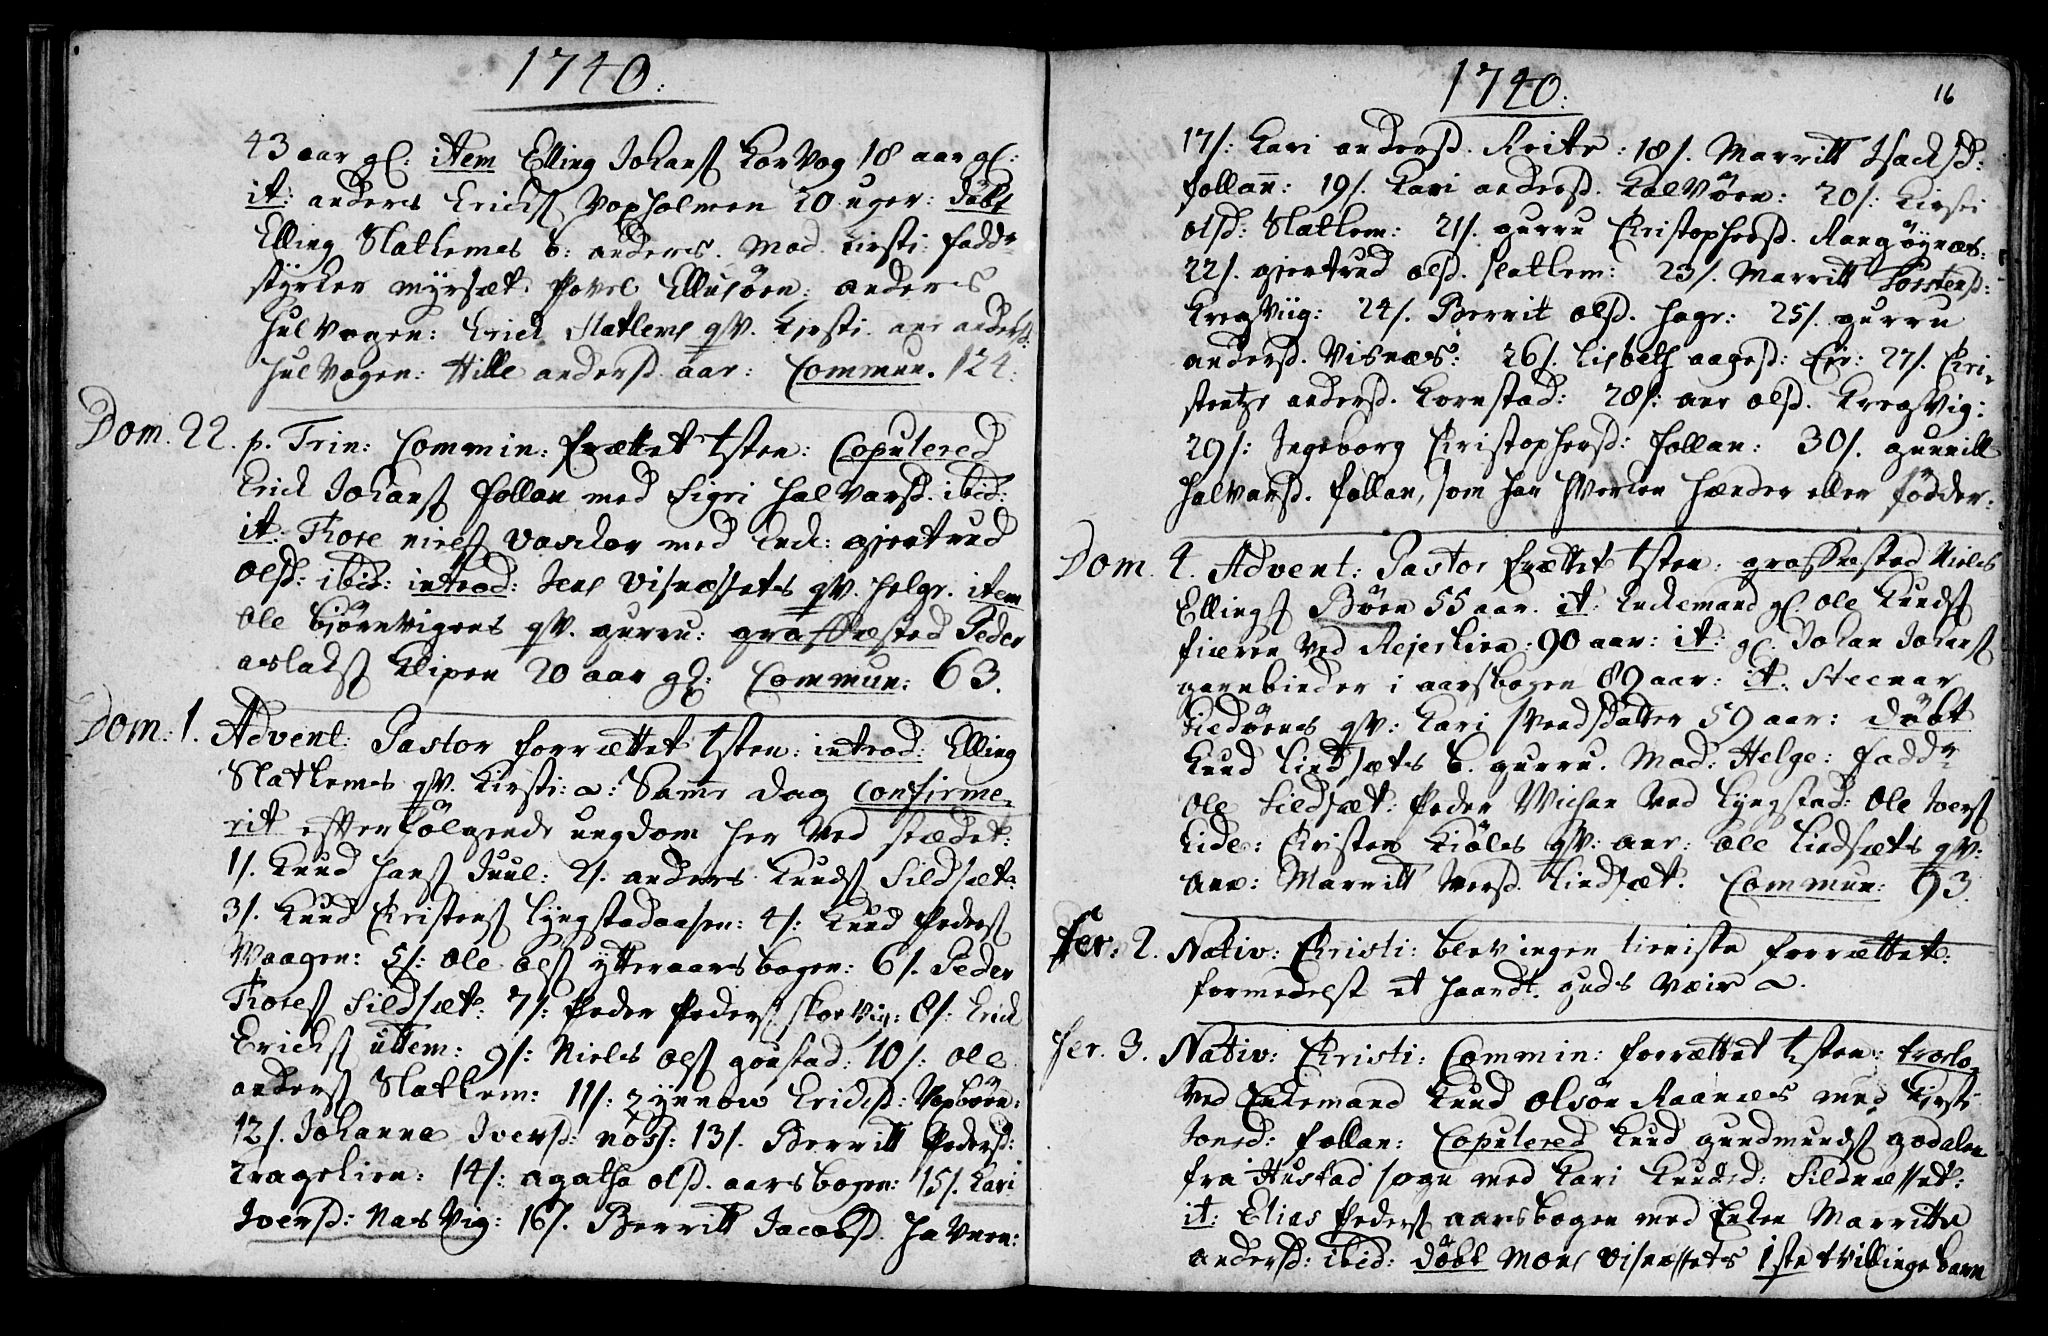 1740.
43 aar gl: item Elling Johans Korvog 18 aar gl:
it: anders Ericks Voxholmen 20 uger: døbt
Elling Slatlemes b: anders. Mad. Kirsti: fadd:
styrker myrsæt: Povel Ellusøen: anders
Hulvogen: Erick Slatlems qv. Kirsti. ane andersd:
Hulvogen: Hille andersd. aar: Commun. 124:
Dom. 22. p. Trin: Commin: frættet tsten: Copulered
Erick Johans follan med Sigri Halvarsd. ibid:
it: Thore niels Vasclov med Enck: giertrud
olsd: ibid: introd: Jens Visnæssets qv. Helge. item
Ole biörnvigens qv. gurru: graffæsted Peder
aslaks Klipen 20 aar gl: Commun: 63.
Dom: 1. Advent: Pastor forrættet tsten: introd: Elling
Slatlemes qv. Kirsti: Samme Dag Confirme-
rit efterfølgende ungdom her ved stædet:
1/. Knud Hans Juul: 2/. anders Knuds Sildsæt:
3/. Knud Christens Lyngstadaasen: 4/: Knud Peders
Waagen: 5/: Ole Ols ytteraarsbogen: 6/. Peder
Thores Sildsæt: 7/: Peder Peders Skorvig: 8/: Erick
Ericks uttem: 9/: Niels Ols goustad: 10/: Ole
anders Slatlem: 11/: Synnow Ericksd: Voxböen:
12/. Johanne Iversd: nös: 13/. Berritt Pedersd:
Kragelien: 14/: agatha olsd. aarsbogen: 15/. Kari
Iversd: Nasvig: 16/. Berritt Jacobsd. Havnen:
1740. 16
17/: Kari andersd. Reite: 18/. Marritt Isacksd:
follann: 19/. Kari andersd. Kalvöen: 20/: Kirsti
olsd: Slatlem: 21/. gurru Christophersd. Rangöynæs:
22/. giertrud olsd. slatlem: 23/. Marritt Torstensd:
Kregsviig: 24/. Berrit olsd. Hage: 25/. gurru
andersd. Visnæs: 26/. Lisbeth aagesd: Eie: 27/. Chri-
stentze andersd. Kornstad: 28/: ane olsd. Kregsvig:
29/: Ingeborg Christophersd: follan: 30/. gunnild
Halvarsd. follan, som har hverken Hænder eller födder:
Dom. 4. Advent: Pastor frættet tsten: graffæsted Niels
Ellings Böen 55 aar. it: Enckemand gl. Ole Knuds
fiæren ved Rejerlien: 90 aar: it: gl. Johan Johans
garnbinder i aarsbogen 89 aar: it. Steenar
Liedöenes qv: Kari Svendsdatter 59 aar: Döbt
Knud Lindsæts b. gurru. Mad: Helge: fadd:
Ole Sildsæt: Peder Michar ved Lyngstad: Ole Ivers
Lide: Christen Kiöles qv: ane: Ole Lindsæts qv:
ane: Marritt Iversd. Lindsæt. Commun: 93.
Fer: 2. Nativ: Christi: blev ingen tieniste forrættet:
formedelst et haardt guds Vejr
Fer. 3. Nativ: Christi: Commin: forrættet tsten: troelo-
ved Enkemand Knud Olsön Raanæs med Kirsti
Jonsd: follan: Copulered Knud gundmunds godalen
fra Hustad sogn med Kari Knudsd: Sildnæsset:
it: Elias Peders aarsbogen med Enken Marritte
andersd: ibid: döbt Mons Visnæssets 1ste tvillinge barn